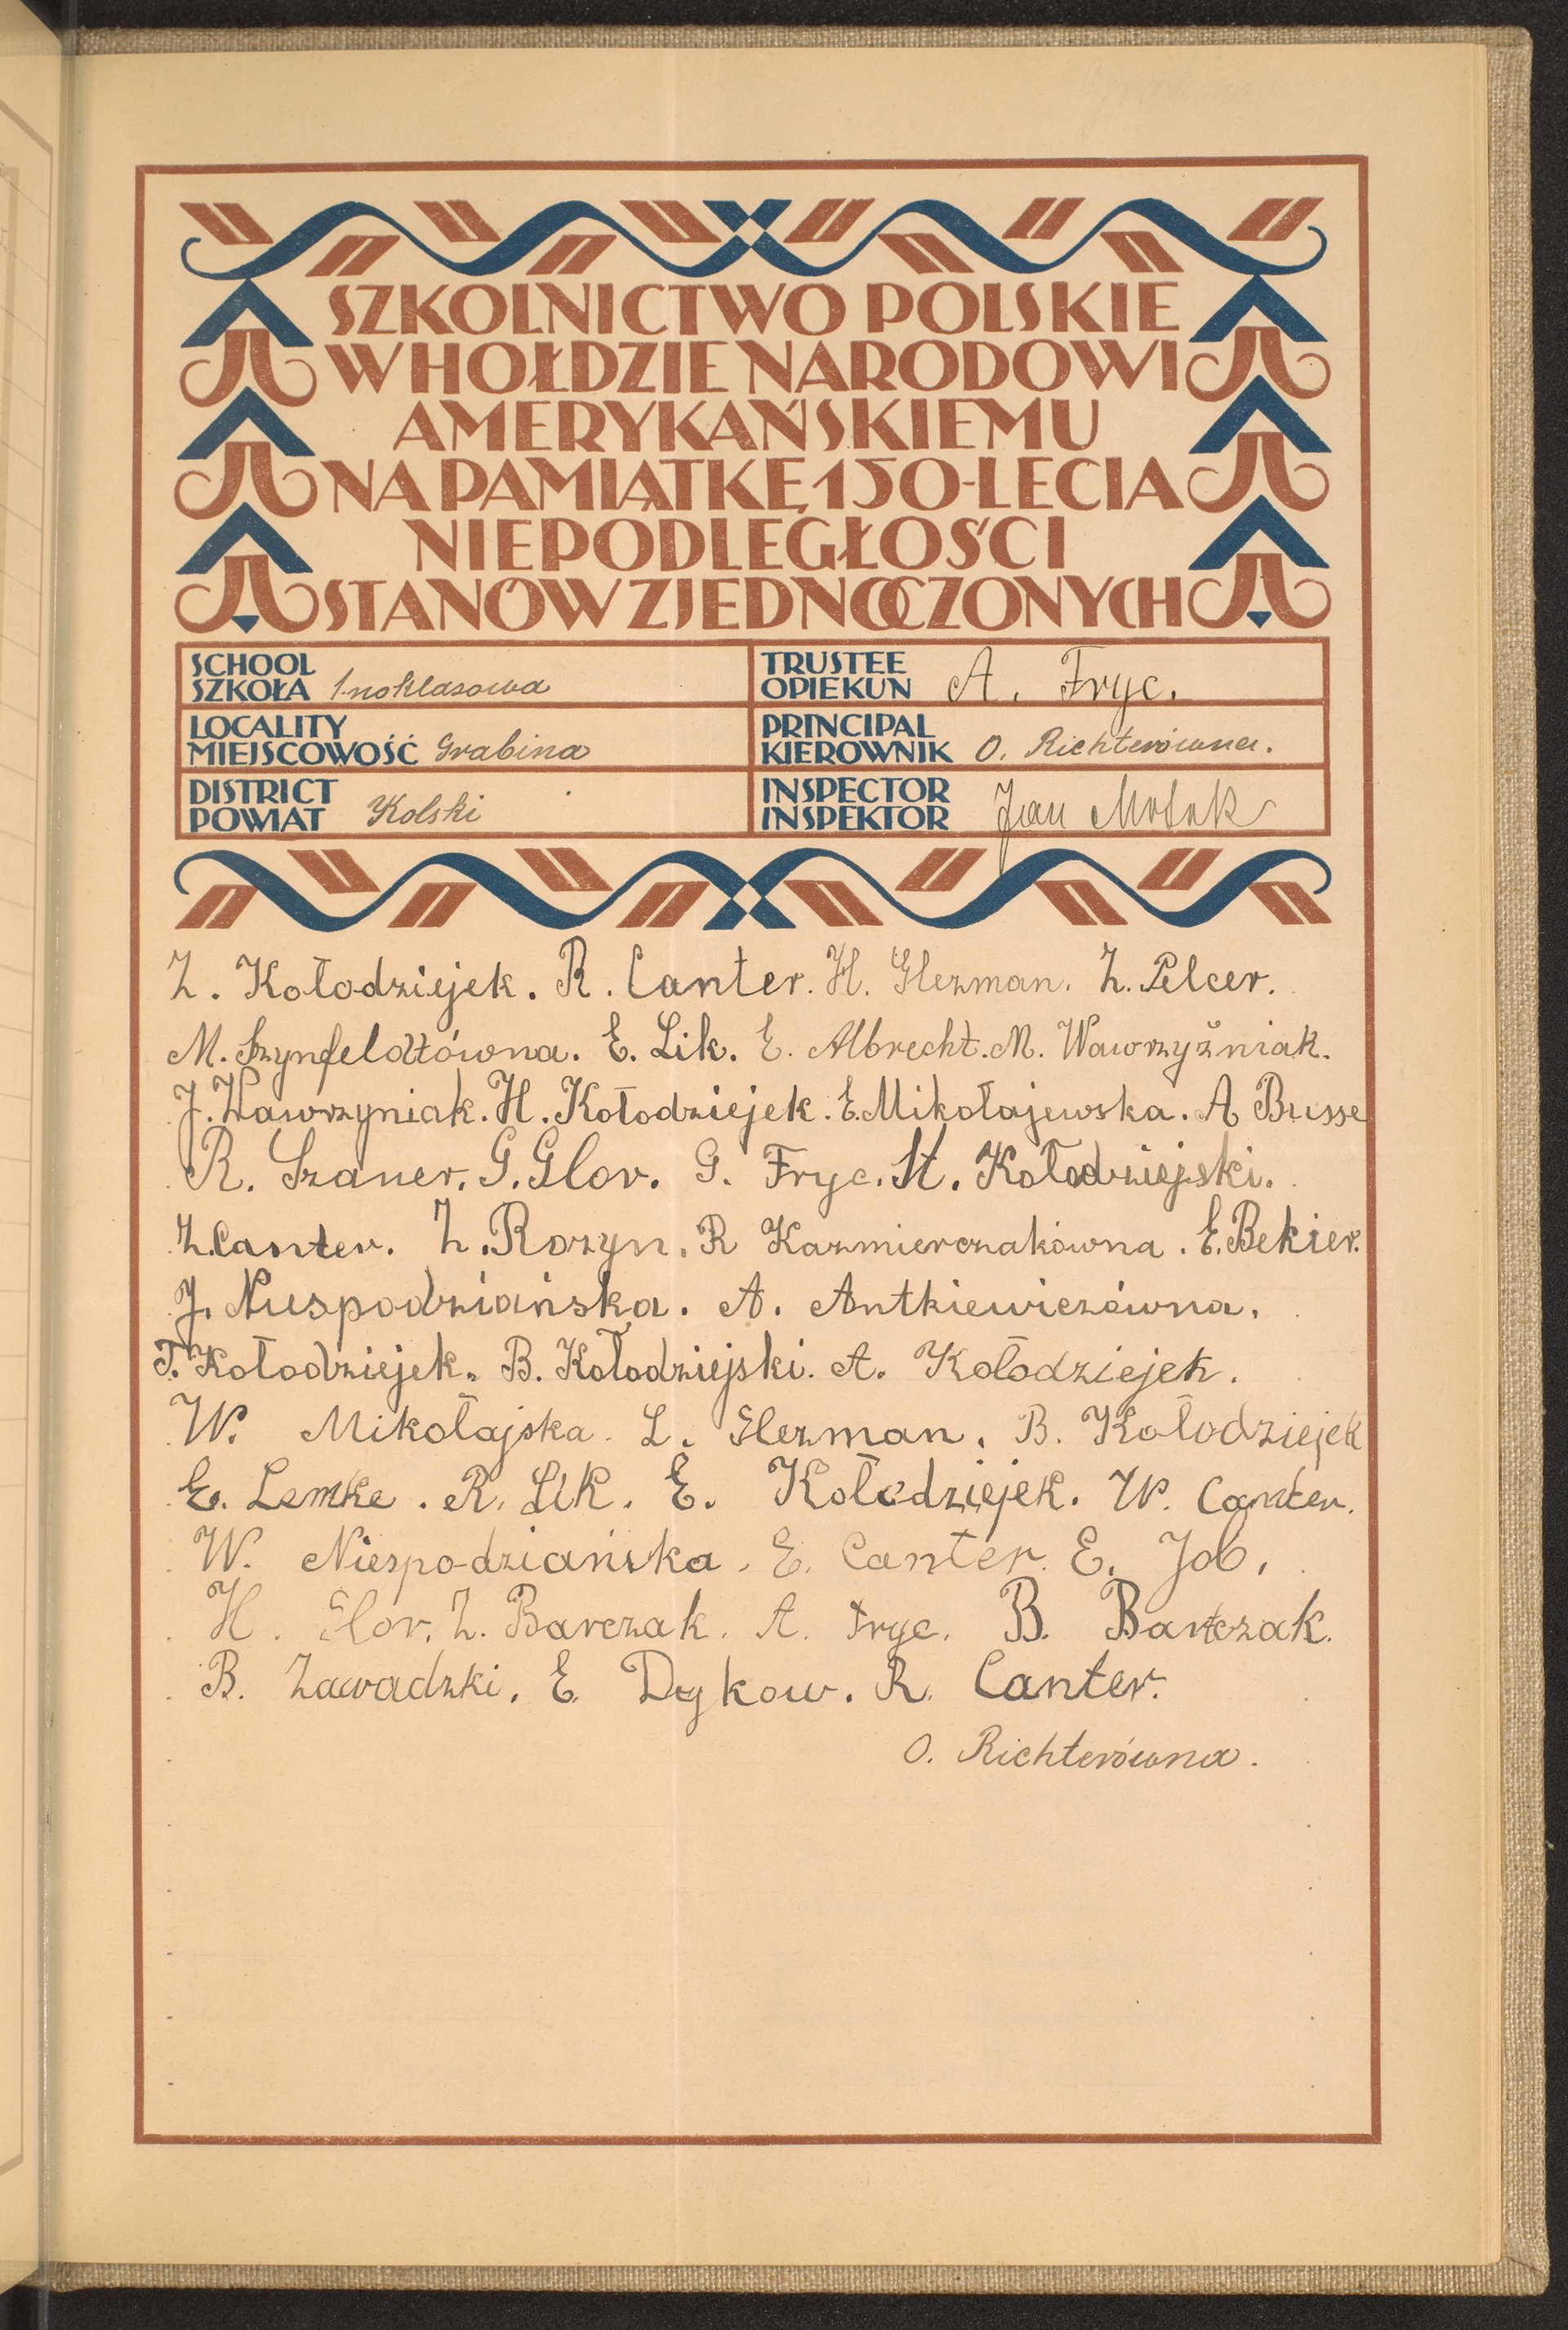 SZKOLNICTWO POLSKIE
W HOŁDZIE NARODOWI
AMERYKAŃSKIEMU
NA PAMIĄTKĘ 150-LECIA
NIEPODLEGŁOŚCI
STANÓW ZJEDNOCZONYCH
SCHOOL
SZKOŁA 1-noklasowa
TRUSTEE
OPIEKUN A. Fryc.
LOCALITY
MIEJSCOWOŚĆ Grabina
PRINCIPAL
KIEROWNIK O. Richterówna.
DISTRICT
POWIAT Kolski
INSPECTOR
INSPEKTOR Jan
Z. Kołodziejek. R. Canter. H. Glezman. Z. Pelcer.
M. Szynfeldtówna. E. Lik. E. Albrecht. M. Wawrzyźniak.
J. Wawrzyniak. H. Kołodziejek. E. Mikołajewska. A Busse
R. Szaner. G. Glor. G. Fryc. St. Kołodziejski.
Z. Canter. Z. Rozyn. R Kazmierczakówna. E. Bekier.
J. Niespodziańska. A. Antkiewiczówna.
T. Kołodziejek. B. Kołodziejski. A. Kołodziejek.
W. Mikołajska. L. Glezman. B. Kołodziejek
E. Lemke. R. Lik. E. Kołodziejek. W. Canter.
W. Niespo-dziańska. E. Canter. E. Job.
H. Glor. Z. Barczak. A. Fryc. B. Bartczak.
B. Zawadzki. E. Dykow. R. Canter.
O. Richterówna.